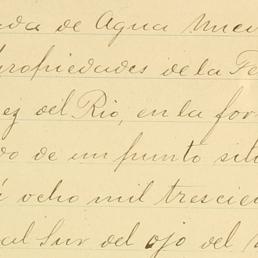 ada de Agua Nuev
propiedades de la Te
ez del Rio, en la for
do de un punto situ
á ocho mil trescien
al Sur del ojo del